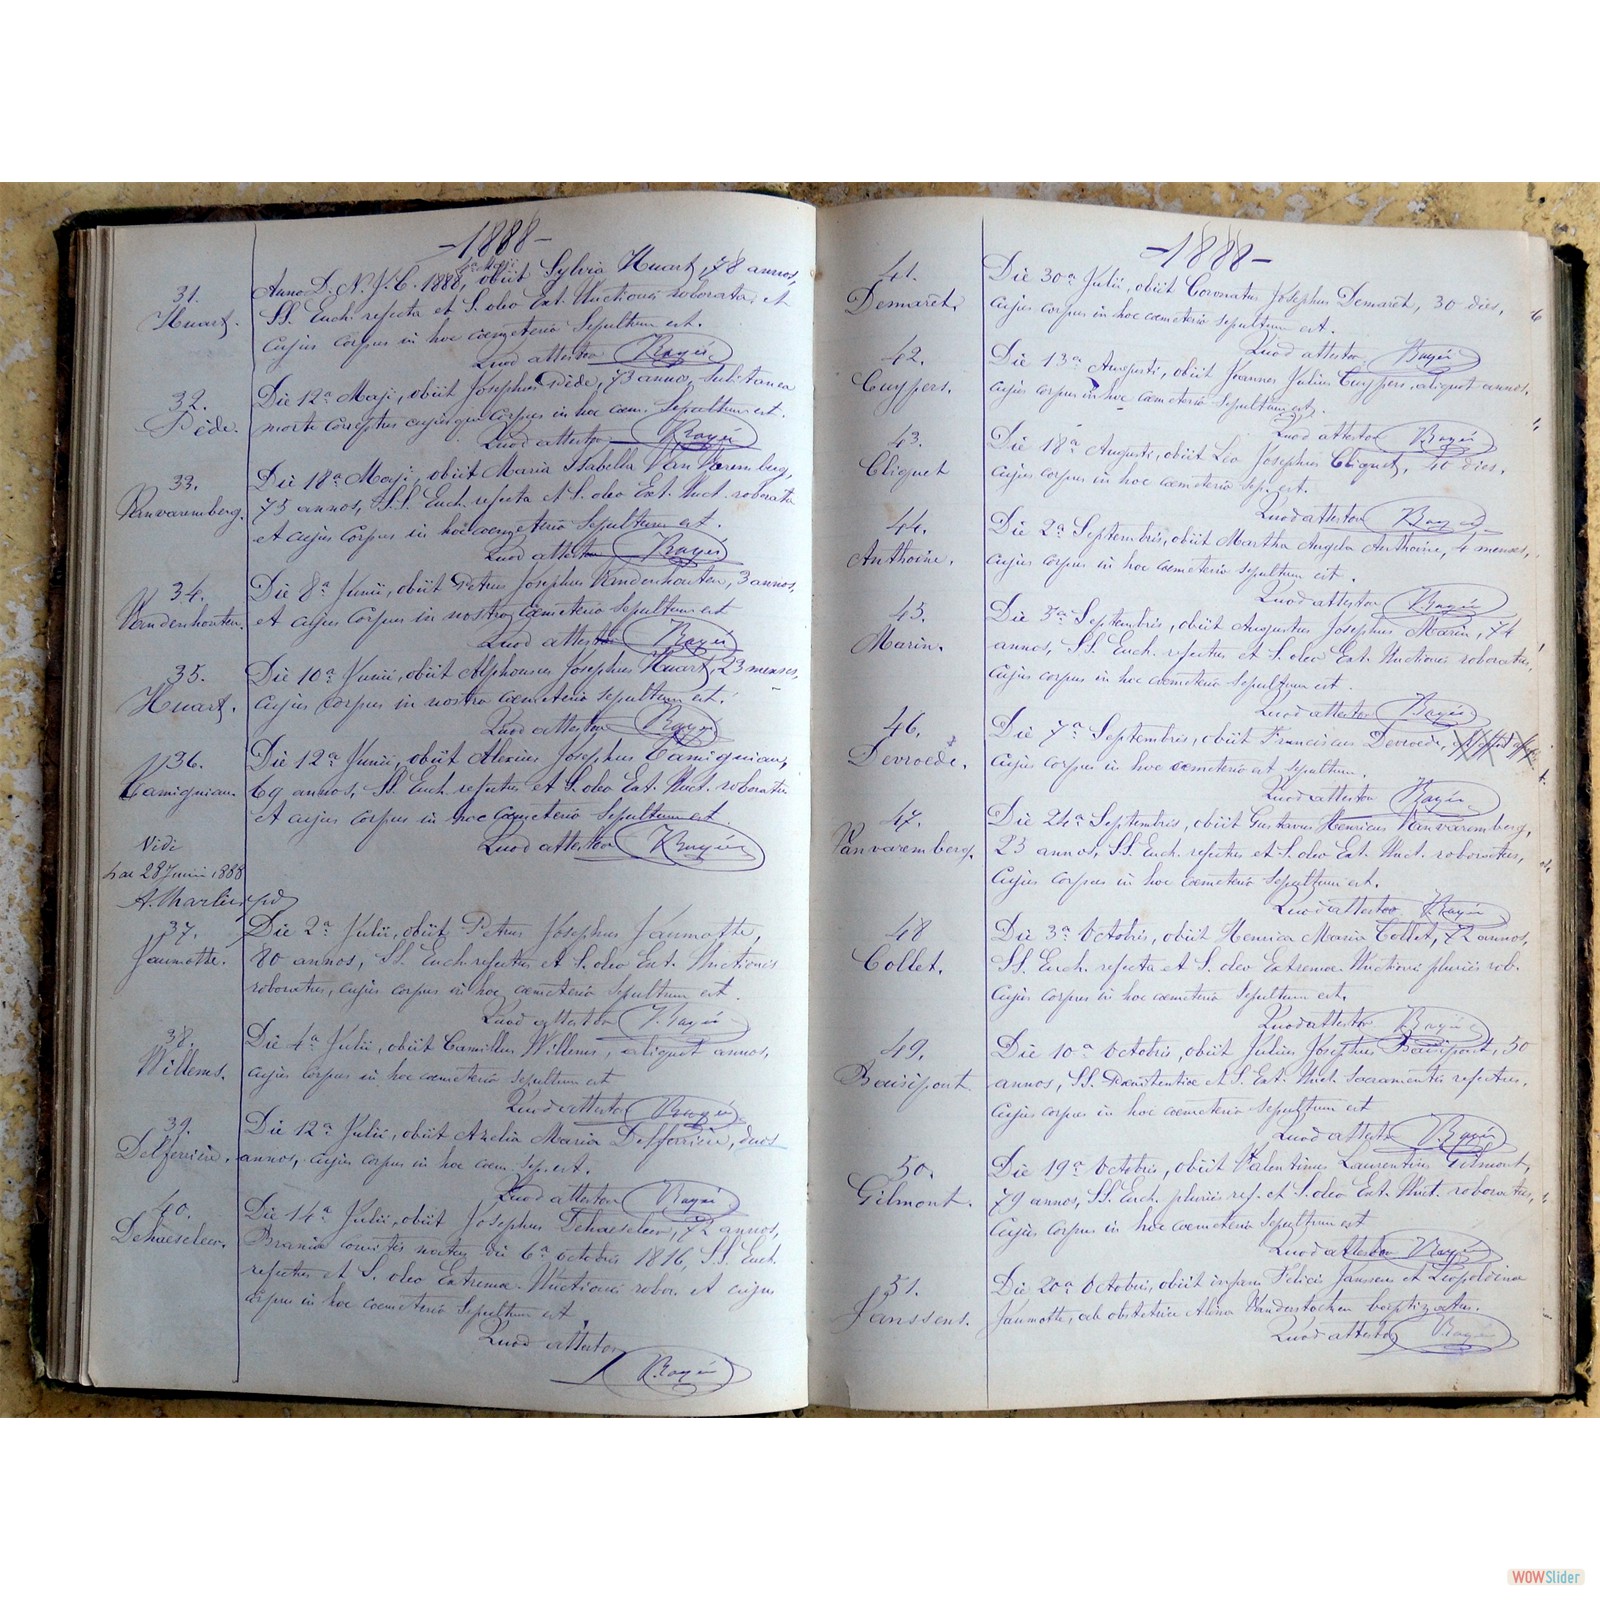 -1888-
4a Maji
31.
Huart.
Anno D. N. J. C. 1888, obiit Sylvia Huart, 78 annos,
SS. Euch. refecta et S. oleo Ext. Unctionis roborata, et
cujus corpus in hoc cœmeterio sepultum est.
Quod attestor
32.
Dède.
Die 12a Maji, obiit Josephus Dède, 73 annos, subitanea
morte correptus cujusque corpus in hoc cœm. sepultum est.
Quod attestor
33.
Vanvaremberg.
Die 18a Maji, obiit Maria Isabella Van Varemberg,
75 annos, SS. Euch. refecta et S. oleo Ext. Unct. roborata
et cujus corpus in hoc cœmeterio sepultum est.
Quod attestor
34.
Vandenhouten.
Die 8a Junii, obiit Petrus Josephus Vandenhouten, 3 annos,
et cujus corpus in nostro cœmeterio sepultum est
Quod attestor
35.
Huart.
Die 10a Junii, obiit Alphonsus Josephus Huart, 23 menses,
cujus corpus in nostro cœmeterio sepultum est.
Quod attestor
36.
Camigniau.
Die 12a Junii, obiit Alexius Josephus Camigniau,
69 annos, SS. Euch. refectus et S. oleo Ext. Unct. roboratus
et cujus corpus in hoc cœmeterio sepultum est.
Quod attestor
Vidi
hac 28 Junii 1888
37.
Jaumotte.
Die 2a Julii, obiit Petrus Josephus Jaumotte,
80 annos, SS. Euch. refectus et S. oleo Ext. Unctionis
roboratus, cujus corpus in hoc cœmeterio sepultum est.
Quod attestor
38.
Willems.
Die 4a Julii, obiit Camillus Willems, aliquot annos,
cujus corpus in hoc cœmeterio sepultum est
Quod attestor
39.
Delferrière.
Die 12a Julii, obiit Azelia Maria Delferrière, duos
annos, cujus corpus in hoc cœm. sep. est.
Quod attestor
40.
Dehaeseleer.
Die 14a Julii, obiit Josephus Dehaeseleer, 72 annos,
Braniæ comitis natus die 6a octobris 1816, SS. Euch.
refectus et S. oleo Extremæ Unctionis robor. et cujus
corpus in hoc cœmeterio sepultum est
Quod attestor
-1888-
41.
Demarêt.
Die 30a Julii, obiit Coronatus Josephus Demarêt, 30 dies,
cujus corpus in hoc cœmeterio sepultum est.
Quod attestor
42.
Cuypers.
Die 13a Augusti, obiit Joannes Julius Cuypers, aliquot annos,
cujus corpus in hoc cœmeterio sepultum est.
Quod attestor
43.
Cliquet
Die 18a Augusti, obiit Leo Josephus Cliquet, 40 dies,
cujus corpus in hoc cœmeterio sep. est.
Quod attestor
44.
Anthoine.
Die 2a Septembris, obiit Martha Angela Anthoine, 4 menses,
cujus corpus in hoc cœmeterio sepultum est.
Quod attestor
45.
Marin.
Die 3a Septembris, obiit Augustus Josephus Marin, 74
annos, SS. Euch. refectus et S. oleo Ext. Unctionis roboratus,
cujus corpus in hoc cœmeterio sepultum est.
Quod attestor
46.
Devroede.
Die 7a Septembris, obiit Franciscus Devroede,
cujus corpus in hoc cœmeterio est sepultum.
Quod attestor
47.
Vanvaremberg.
Die 24a Septembris, obiit Gustavus Henricus Vanvaremberg,
23 annos, SS. Euch. refectus et S. oleo Ext. Unct. roboratus,
cujus corpus in hoc cœmeterio sepultum est.
Quod attestor
48
Collet.
Die 3a Octobris, obiit Henrica Maria Collet, 72 annos,
SS. Euch. refecta et S. oleo Extremæ Unctionis pluriès rob.
cujus corpus in hoc cœmeterio sepultum est.
Quod attestor
49.
Baisipont
Die 10a Octobris, obiit Julius Josephus Baisipont, 50
annos, SS. Pœnitentiæ et S. Ext. Unct. Sacramentis refectus,
cujus corpus in hoc cœmeterio sepultum est
Quod attestor
50.
Gilmont.
Die 19a Octobris, obiit Valentinus Laurentius Gilmont,
79 annos, SS. Euch. pluriès ref. et S. oleo Ext. Unct. roboratus,
cujus corpus in hoc cœmeterio sepultum est
Quod attestor
51.
Janssens.
Die 20a Octobris, obiit infans Felicis Janssens et Leopoldina
Jaumotte, ab obstetrice Alina Vanderstocken baptizatus.
Quod attestor
WOWSlider